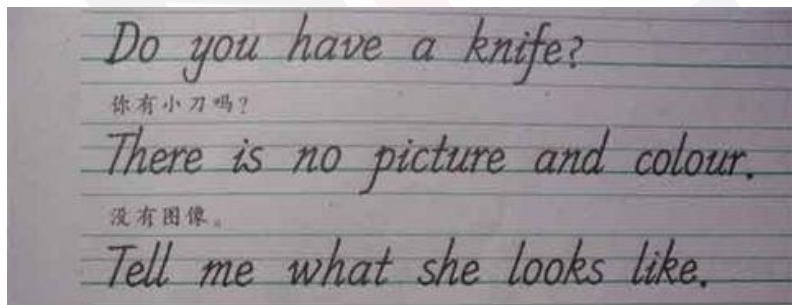 Do you have a knife?
你有小刀吗?
There is no picture and colour.
没有图像。
Tell me what she looks like.